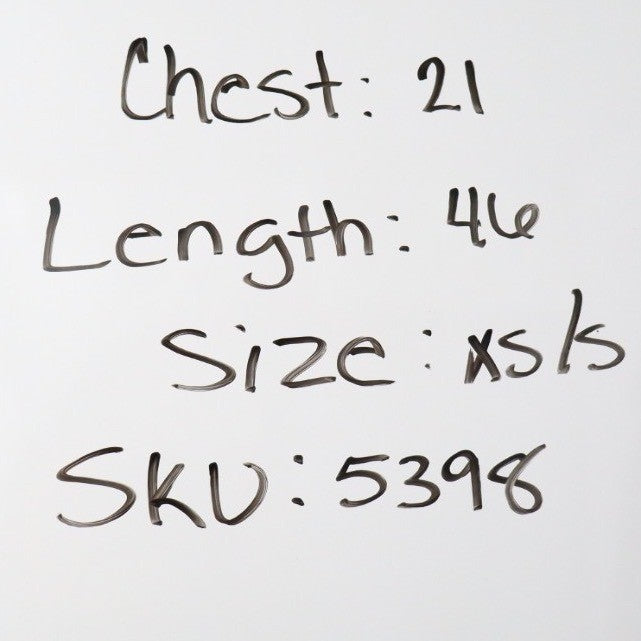 Chest: 21
Length: 46
Size: xs/s
SKU: 5398